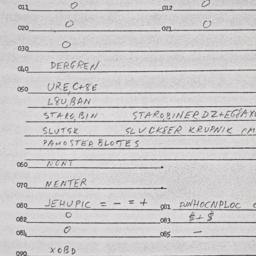 011 0 012 0
020 0 021 0
030 0
040 DERGREN
050 URE,C+8E
L8U,BAN
STARO,BIN STAROBINERDZ+EGIAY
SLUTSK SLUCKSER KRUPNIK
PAMOSTER BLOTES
060 NONT
070 NENTER
080 JEHUPIC = - = + 081 DUNHOCNPLOC
082 0 083 $+$
084 0 085 -
090 XOBD